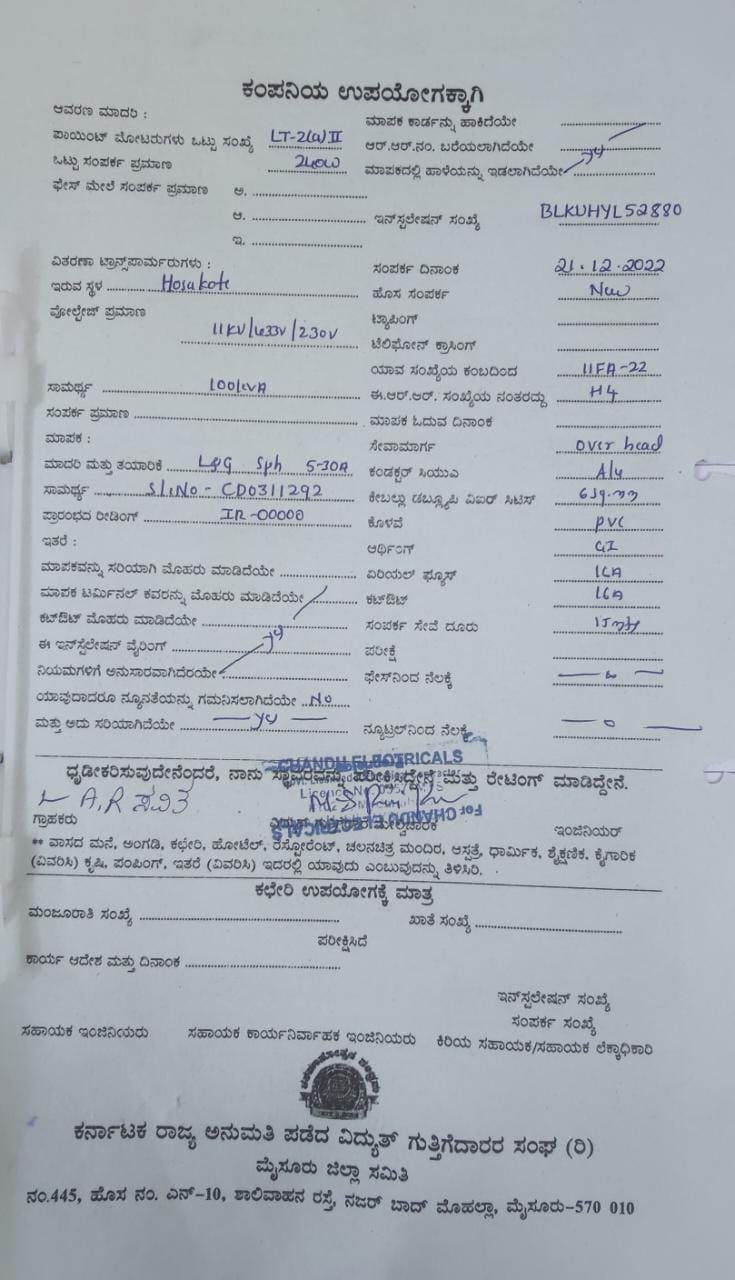 ಕಂಪನಿಯ ಉಪಯೋಗಕ್ಕಾಗಿ
ಆವರಣ ಮಾದರಿ :
ಮಾಪಕ ಕಾರ್ಡನ್ನು ಹಾಕಿದೆಯೇ
ಪಾಯಿಂಟ್ ಮೋಟರುಗಳು ಒಟ್ಟು ಸಂಖ್ಯೆ LT-2(a) II
ಆರ್.ಆರ್.ನಂ. ಬರೆಯಲಾಗಿದೆಯೇ
ಒಟ್ಟು ಸಂಪರ್ಕ ಪ್ರಮಾಣ 240W
ಮಾಪಕದಲ್ಲಿ ಹಾಳೆಯನ್ನು ಇಡಲಾಗಿದೆಯೇ
ಫೇಸ್ ಮೇಲೆ ಸಂಪರ್ಕ ಪ್ರಮಾಣ ಅ.
ಆ.
ಇನ್‌ಸ್ಟಲೇಷನ್ ಸಂಖ್ಯೆ BLKUHYL52880
ಇ.
ವಿತರಣಾ ಟ್ರಾನ್ಸ್‌ಪಾರ್ಮರುಗಳು :
ಸಂಪರ್ಕ ದಿನಾಂಕ 21.12.2022
ಇರುವ ಸ್ಥಳ Hosakote
ಹೊಸ ಸಂಪರ್ಕ New
ವೋಲ್ಟೇಜ್ ಪ್ರಮಾಣ
11KV/433V/230V
ಟ್ಯಾಪಿಂಗ್
ಟೆಲಿಫೋನ್ ಕ್ರಾಸಿಂಗ್
ಯಾವ ಸಂಖ್ಯೆಯ ಕಂಬದಿಂದ 11FA-22
ಸಾಮರ್ಥ್ಯ 100KVA
ಈ.ಆರ್.ಆರ್. ಸಂಖ್ಯೆಯ ನಂತರದ್ದು H4
ಸಂಪರ್ಕ ಪ್ರಮಾಣ
ಮಾಪಕ ಓದುವ ದಿನಾಂಕ
ಮಾಪಕ :
ಸೇವಾಮಾರ್ಗ over head
ಮಾದರಿ ಮತ್ತು ತಯಾರಿಕೆ L&G Sph 5-30A
ಕಂಡಕ್ಟರ್ ಸಿಯುಎ Aly
ಸಾಮರ್ಥ್ಯ Sl.No - CD0311292
ಕೇಬಲ್ಲು ಡಬ್ಲ್ಯೂಪಿ ವಿಐರ್ ಸಿಟಿಸ್ 6sq.mm
ಪ್ರಾರಂಭದ ರೀಡಿಂಗ್ IR-00000
ಕೊಳವೆ PVC
ಇತರೆ :
ಆರ್ಥಿಂಗ್ GI
ಮಾಪಕವನ್ನು ಸರಿಯಾಗಿ ಮೊಹರು ಮಾಡಿದೆಯೇ
ಏರಿಯಲ್ ಫ್ಯೂಸ್ 16A
ಮಾಪಕ ಟರ್ಮಿನಲ್ ಕವರನ್ನು ಮೊಹರು ಮಾಡಿದೆಯೇ
ಕಟ್‌ಔಟ್ 16A
ಕಟ್‌ಔಟ್ ಮೊಹರು ಮಾಡಿದೆಯೇ
ಸಂಪರ್ಕ ಸೇವೆ ದೂರು
ಈ ಇನ್‌ಸ್ಟಲೇಷನ್ ವೈರಿಂಗ್
ಪರೀಕ್ಷೆ
ನಿಯಮಗಳಿಗೆ ಅನುಸಾರವಾಗಿದೆರಯೇ
ಫೇಸ್‌ನಿಂದ ನೆಲಕ್ಕೆ
ಯಾವುದಾದರೂ ನ್ಯೂನತೆಯನ್ನು ಗಮನಿಸಲಾಗಿದೆಯೇ No
ಮತ್ತು ಅದು ಸರಿಯಾಗಿದೆಯೇ
ನ್ಯೂಟ್ರಲ್‌ನಿಂದ ನೆಲಕ್ಕೆ
CHANDU ELECTRICALS
ಧೃಡೀಕರಿಸುವುದೇನೆಂದರೆ, ನಾನು ಸ್ಥಾವರವನ್ನು ಪರೀಕ್ಷಿದ್ದೇನೆ ಮತ್ತು ರೇಟಿಂಗ್ ಮಾಡಿದ್ದೇನೆ.
A.R ಸವಿತ
For CHANDU ELECTRICALS
ಗ್ರಾಹಕರು
ಇಂಜಿನಿಯರ್
** ವಾಸದ ಮನೆ, ಅಂಗಡಿ, ಕಛೇರಿ, ಹೋಟೆಲ್, ರೆಸ್ಟೋರೆಂಟ್, ಚಲನಚಿತ್ರ ಮಂದಿರ, ಆಸ್ಪತ್ರೆ, ಧಾರ್ಮಿಕ, ಶೈಕ್ಷಣಿಕ, ಕೈಗಾರಿಕ
(ವಿವರಿಸಿ) ಕೃಷಿ, ಪಂಪಿಂಗ್, ಇತರೆ (ವಿವರಿಸಿ) ಇದರಲ್ಲಿ ಯಾವುದು ಎಂಬುವುದನ್ನು ತಿಳಿಸಿರಿ.
ಕಛೇರಿ ಉಪಯೋಗಕ್ಕೆ ಮಾತ್ರ
ಮಂಜೂರಾತಿ ಸಂಖ್ಯೆ
ಖಾತೆ ಸಂಖ್ಯೆ
ಪರೀಕ್ಷಿಸಿದೆ
ಕಾರ್ಯ ಆದೇಶ ಮತ್ತು ದಿನಾಂಕ
ಇನ್‌ಸ್ಟಲೇಷನ್ ಸಂಖ್ಯೆ
ಸಂಪರ್ಕ ಸಂಖ್ಯೆ
ಸಹಾಯಕ ಇಂಜಿನಿಯರು ಸಹಾಯಕ ಕಾರ್ಯನಿರ್ವಾಹಕ ಇಂಜಿನಿಯರು ಕಿರಿಯ ಸಹಾಯಕ/ಸಹಾಯಕ ಲೆಕ್ಕಾಧಿಕಾರಿ
ಕರ್ನಾಟಕ ರಾಜ್ಯ ಅನುಮತಿ ಪಡೆದ ವಿದ್ಯುತ್ ಗುತ್ತಿಗೆದಾರರ ಸಂಘ (ರಿ)
ಮೈಸೂರು ಜಿಲ್ಲಾ ಸಮಿತಿ
ನಂ.445, ಹೊಸ ನಂ. ಎನ್-10, ಶಾಲಿವಾಹನ ರಸ್ತೆ, ನಜರ್ ಬಾದ್ ಮೊಹಲ್ಲಾ, ಮೈಸೂರು-570 010